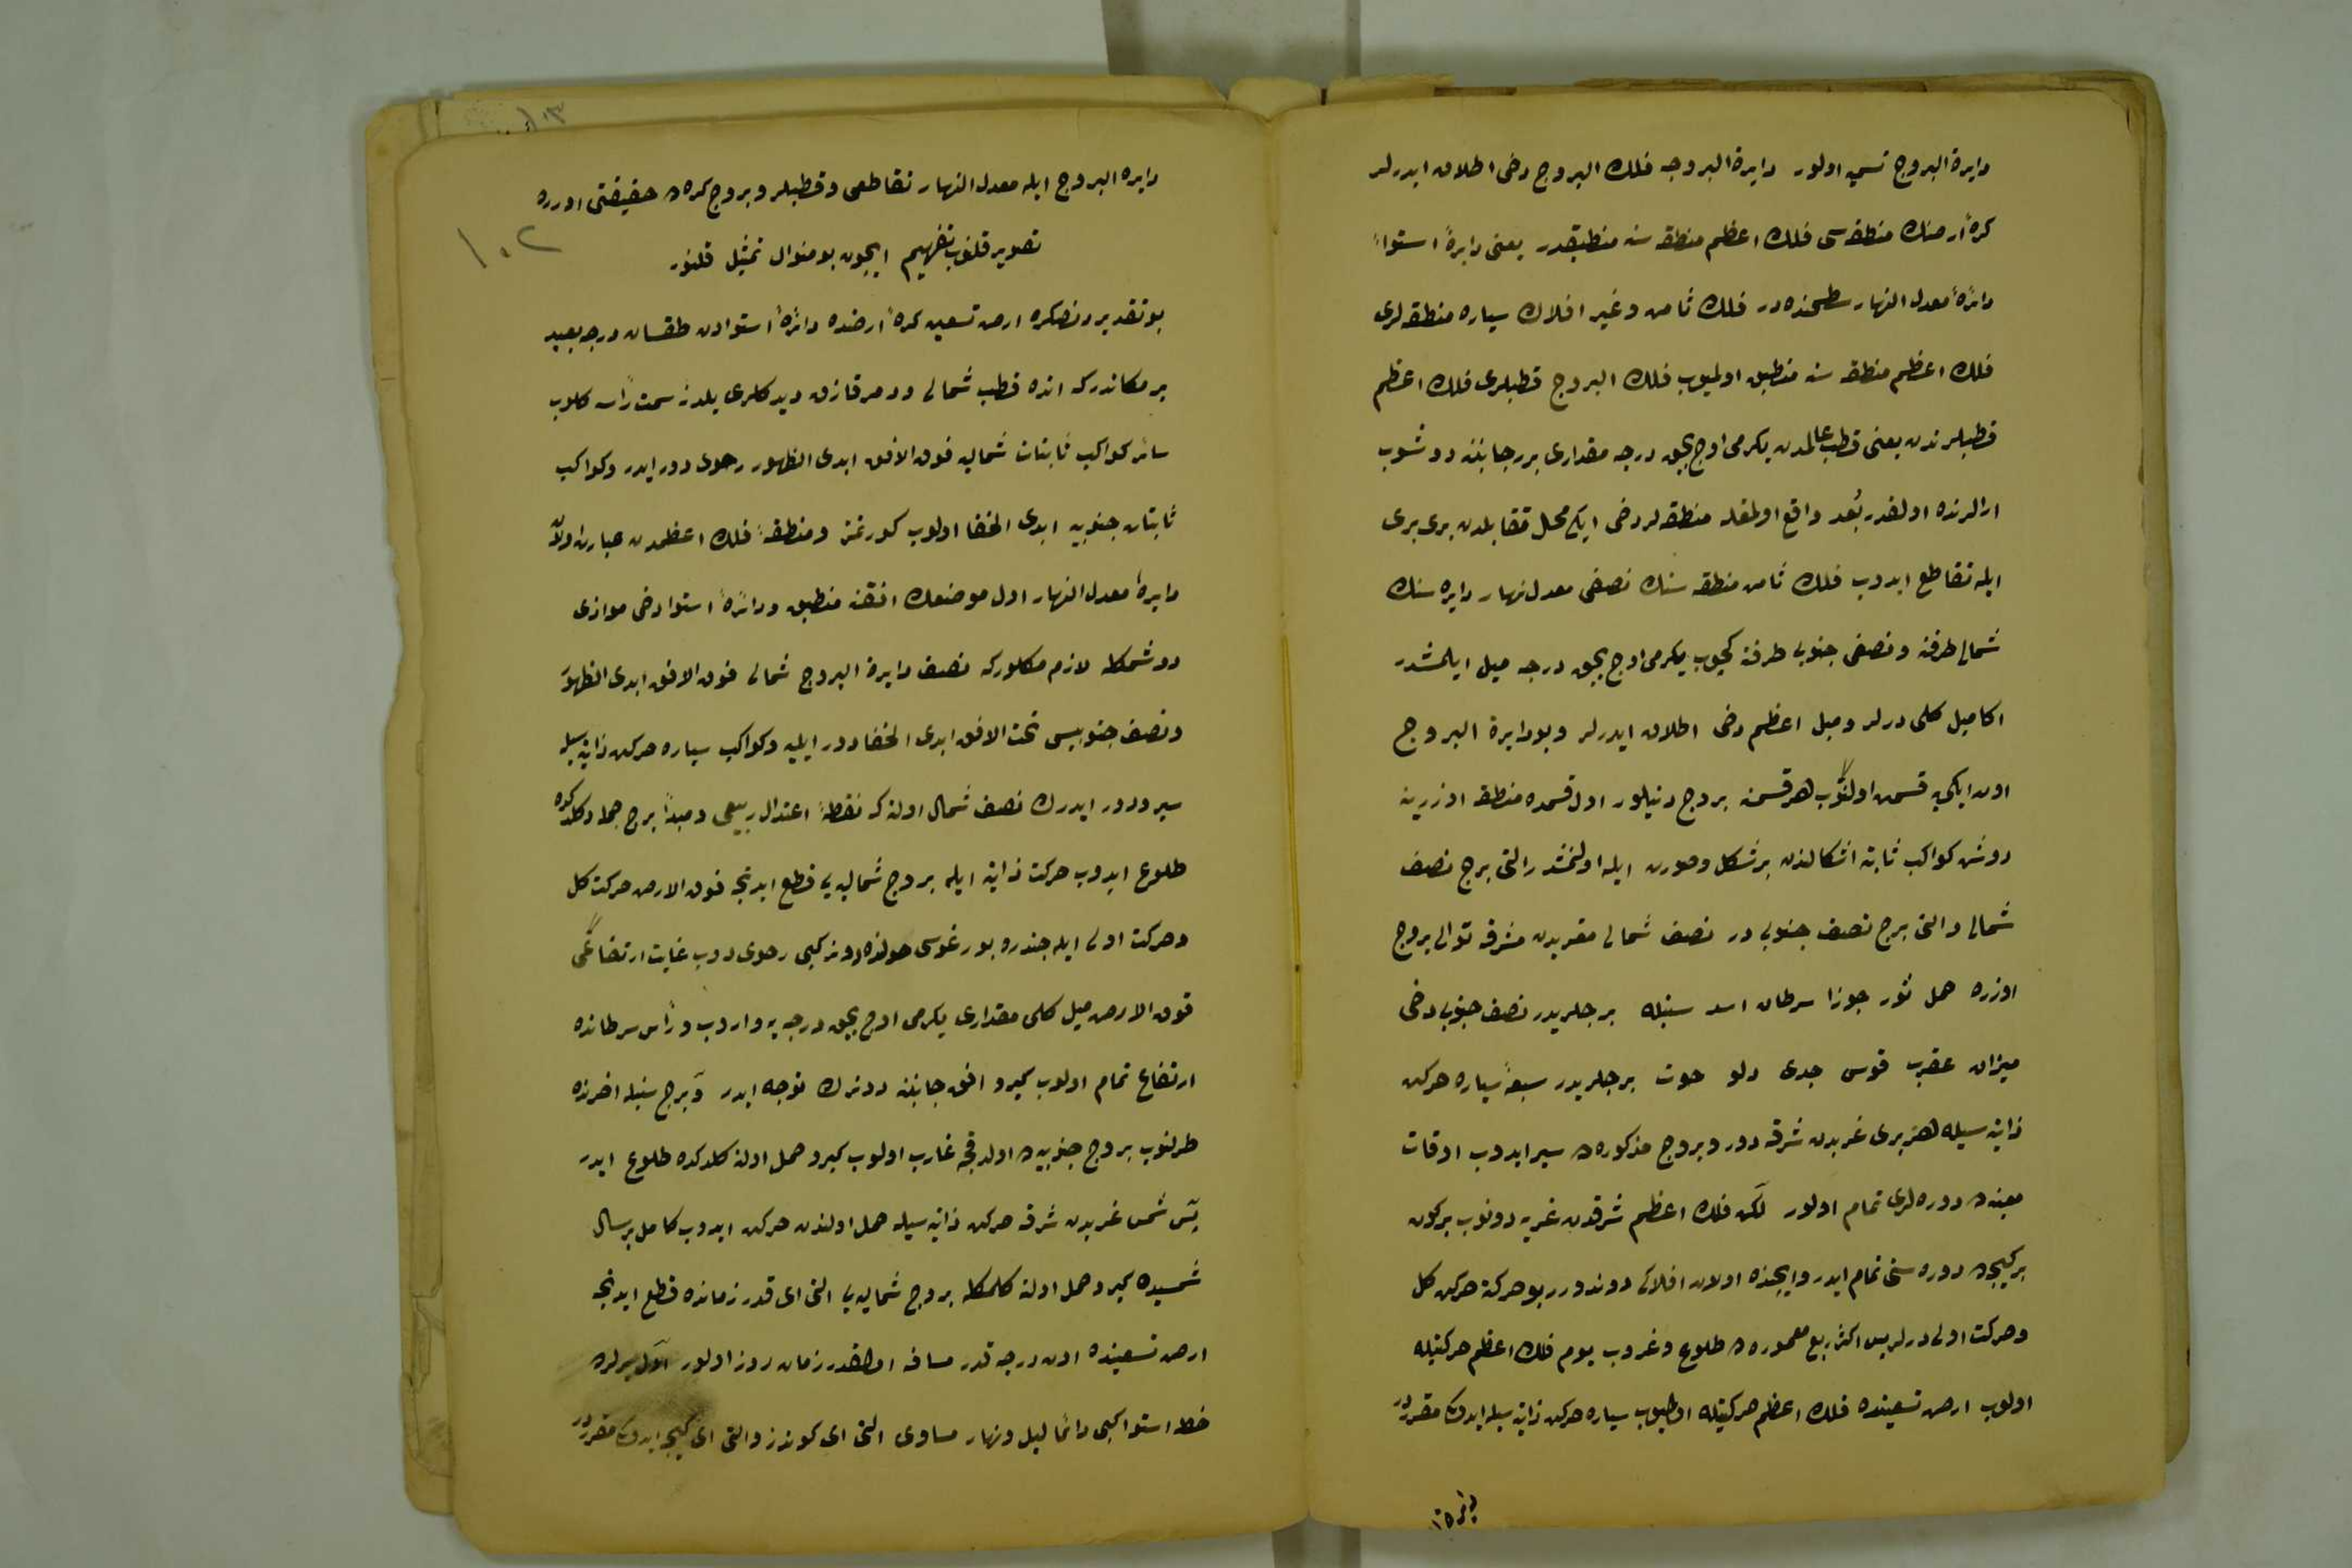 دايرة البروج تسميه اولنور دايرة البروجه فلك البروج دخى اطلاق ايدرلر
كرۀ ارضك منطقه سى فلك اعظم منطقه سنه منطبقدر يعنى دايرۀ استواء
دائرۀ معدل النهار سطحنده در فلك ثامن و غير افلاك سياره منطقه لرى
فلك اعظم منطقه سنه منطبق اولميوب فلك البروج قطبلرى فلك اعظم
قطبلرندن يعنى قطب عالمدن يكرمى اوچ بچق درجه مقدارى برر جانبنه دوشوب
ارالرنده اولقدر بُعد واقع اولمغله منطقه لر دخى ايكى محل متقابلدن برى برى
ايله تقاطع ايدوب فلك ثامن منطقه سنك نصفى معدل نهار دايره سنك
شمالى طرفنه و نصفى جنوبى طرفنه كچوب يكرمى اوچ بچق درجه ميل ايلمشدر
اكا ميل كلى ديرلر و ميل اعظم دخى اطلاق ايدرلر و بو دايرة البروج
اون ايكى قسمت اولنوب هر قسمنه بروج دنيلور اول قسمده منطقه اوزرينه
دوشن كواكب ثابته اشكالندن بر شكل و صورت ايله اولنمشدر التى برج نصف
شمالى و التى برج نصف جنوبى در نصف شمالى مغربدن مشرقه توالى بروج
اوزره حمل ثور جوزا سرطان اسد سنبله برجلريدر نصف جنوبى دخى
ميزان عقرب قوس جدى دلو حوت برجلريدر سبعۀ سياره حركت
ذاتيه سيله هر برى غربدن شرقه دور و بروج مذكوره ده سير ايدوب اوقات
معينه ده دوره لرى تمام اولور لكن فلك اعظم شرقدن غربه دونوب بر كون
بر كيجه ده دوره سنى تمام ايدر و ايچنده اولان افلاكى دوندورر بو حركته حركت كل
و حركت اولى ديرلر پس اكثر ربع معموره ده طلوع و غروب يوم فلك اعظم حركتيله
اولوب ارض تسعينده فلك اعظم حركتيله اولميوب سياره حركت ذاتيه سيله ايدوكى مقرردر
دايره
دايره البروج ايله معدل النهار تقاطعى و قطبلر و بروج كره ده حقيقتى اوزره
تصوير قلنوب تفهيم ايچون بو منوال تمثيل قلنور
بو تقديردنصكره ارض تسعين كرۀ ارضده دائرۀ استوادن طقسان درجه بعيد
بر مكاندركه انده قطب شمالى و دمر قازق ديدكلرى يلدز سمت رأسه كلوب
سائر كواكب ثابتات شماليه فوق الافق ابدى الظهور رحوى دور ايدر و كواكب
ثابتات جنوبيه ابدى الخفا اولوب كورنمز و منطقۀ فلك اعظمدن عبارت اولان
دايرۀ معدل النهار اول موضعك افقنه منطبق و دائرۀ استوا دخى موازى
دوشمكله لازم كلوركه نصف دايرة البروج شمالى فوق الافق ابدى الظهور
و نصف جنوبيسى تحت الافق ابدى الخفا دور ايليه و كواكب سياره حركت ذاتيه سيله
سير و دور ايدرك نصف شمالى اولنه كه نقطۀ اعتدال ربيعى و مبدأ برج حملدر كلدكده
طلوع ايدوب حركت ذاتيه ايله بروج شماليه يى قطع ايدنجه فوق الارض حركت كل
و حركت اولى ايله جندره بورغوسى حولنده دونر كبى رحوى دونوب غايت ارتفاعى
فوق الارض ميل كلى مقدارى يكرمى اوچ بچق درجه يه واروب و رأس سرطانده
ارتفاع تمام اولوب كيرو افق جانبنه دونرك توجه ايدر و برج سنبله اخرنده
طولنوب بروج جنوبيه ده اولدقجه غارب اولوب كيرو حمل اولنه كلدكده طلوع ايدر
پس شمس غربدن شرقه حركت ذاتيه سيله حمل اولندن حركت ايدوب كامل بر سال
شمسيده كيرو حمل اولنه كلمكله بروج شماليه يى التى اى قدر زمانده قطع ايدنجه
ارض تسعينده اون درجه قدر مسافه اولقدر زمان روز اولور اول يرلرده
خط استوا كبى دائما ليل و نهار مساوى التى اى كوندز و التى اى كيجه ايدوكى مقرردر
١٠٢
١٠٣